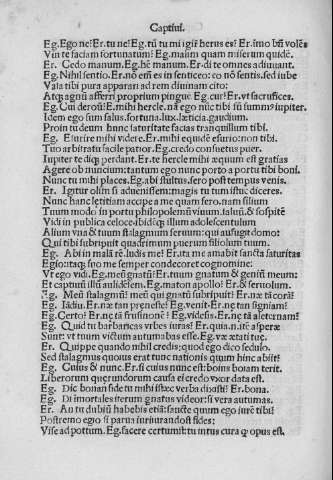 Captiui.
Eg. Ego ne? Er. tu ne? Eg. tū tu mi igiť herus es? Er. imo bñ volēs
Vin te faciam fortunatum? Eg. malim quam miserum quidē.
Er. Cedo manum. Eg. hē manum. Er. di te omnes adiuuant.
Eg. Nihil sentio. Er. nō em̄ es in senticeto: eo nō sentis. sed iube
Vala tibi pura apparari ad rem diuinam cito:
Atq; agnū afferri proprium pingue. Eg. cur? Er. vt sacrufices.
Eg. Cui deorū? Er. mihi hercle. nā ego nūc tibi sū summꝰ iupiter.
Idem ego sum salus. fortuna. lux. læticia. gaudium.
Proin tu deum hunc saturitate facias tranquillum tibi.
Eg. Esurire mihi videre. Er. mihi equidē esurio: non tibi.
Tuo arbitratu facile patior. Eg. credo consuetus puer.
Iupiter te diiq; perdant. Er. te hercle mihi æquum est gratias
Agere ob nuncium: tantum ego nunc porto a portu tibi boni.
Nunc tu mihi places. Eg. abi stultus. sero post tempus venis.
Er. Igitur olim si aduenissem: magis tu tum istuc diceres.
Nunc hanc letitiam accipe a me quam fero. nam filium
Tuum modo in portu philopolemū viuum. saluū. & sospitē
Vidi in publica celoce. ibidēq; illum adolescentulum
Alium vna & tuum stalagmum seruum: qui aufugit domo:
Qui tibi surripuit quadrimum puerum filiolum tuum.
Eg. Abi in malā rē. ludis me? Er. ita me amabit sancta saturitas
Egio: itaq; suo me semper condecoret cognomine:
Vt ego vidi. Eg. meū gnatū? Er. tuum gnatum & geniū meum:
Et captum illū aulidēsem. Eg. maton apollo? Er. & seruolum.
Eg. Meū stalagmū? meū qui gnatū surripuit? Er. næ tā corā?
Eg. Iādiu. Er. næ tan preneste? Eg. venit. Er. nę tan signiam?
Eg. Certo? Er. nę tā frusinonē? Eg. videsis. Er. nę tā aleternam?
Eg. Quid tu barbaricas vrbes iuras? Er. quia. n. itē asperæ
Sunt: vt tuum victum autumabas esse. Eg. væ ætati tuę.
Er. Quippe quando nihil credis: quod ego dico sedulo.
Sed stalagmus quoius erat tunc nationis quum hinc abiit?
Eg. Cuius & nunc. Er. si cuius nunc est: boius boiam terit.
Liberorum querundorum causa ei credo vxor data est.
Eg. Dic bonan fide tu mihi istec verba dixisti? Er. bona.
Eg. Di immortales iterum gnatus videor: si vera autumas.
Er. An tu dubiū habebis etiā: sancte quum ego iurē tibi?
Postremo egio si parua iuriurandost fides:
Vise ad portum. Eg. facere certumst: tu intus cura q̄ opus est.